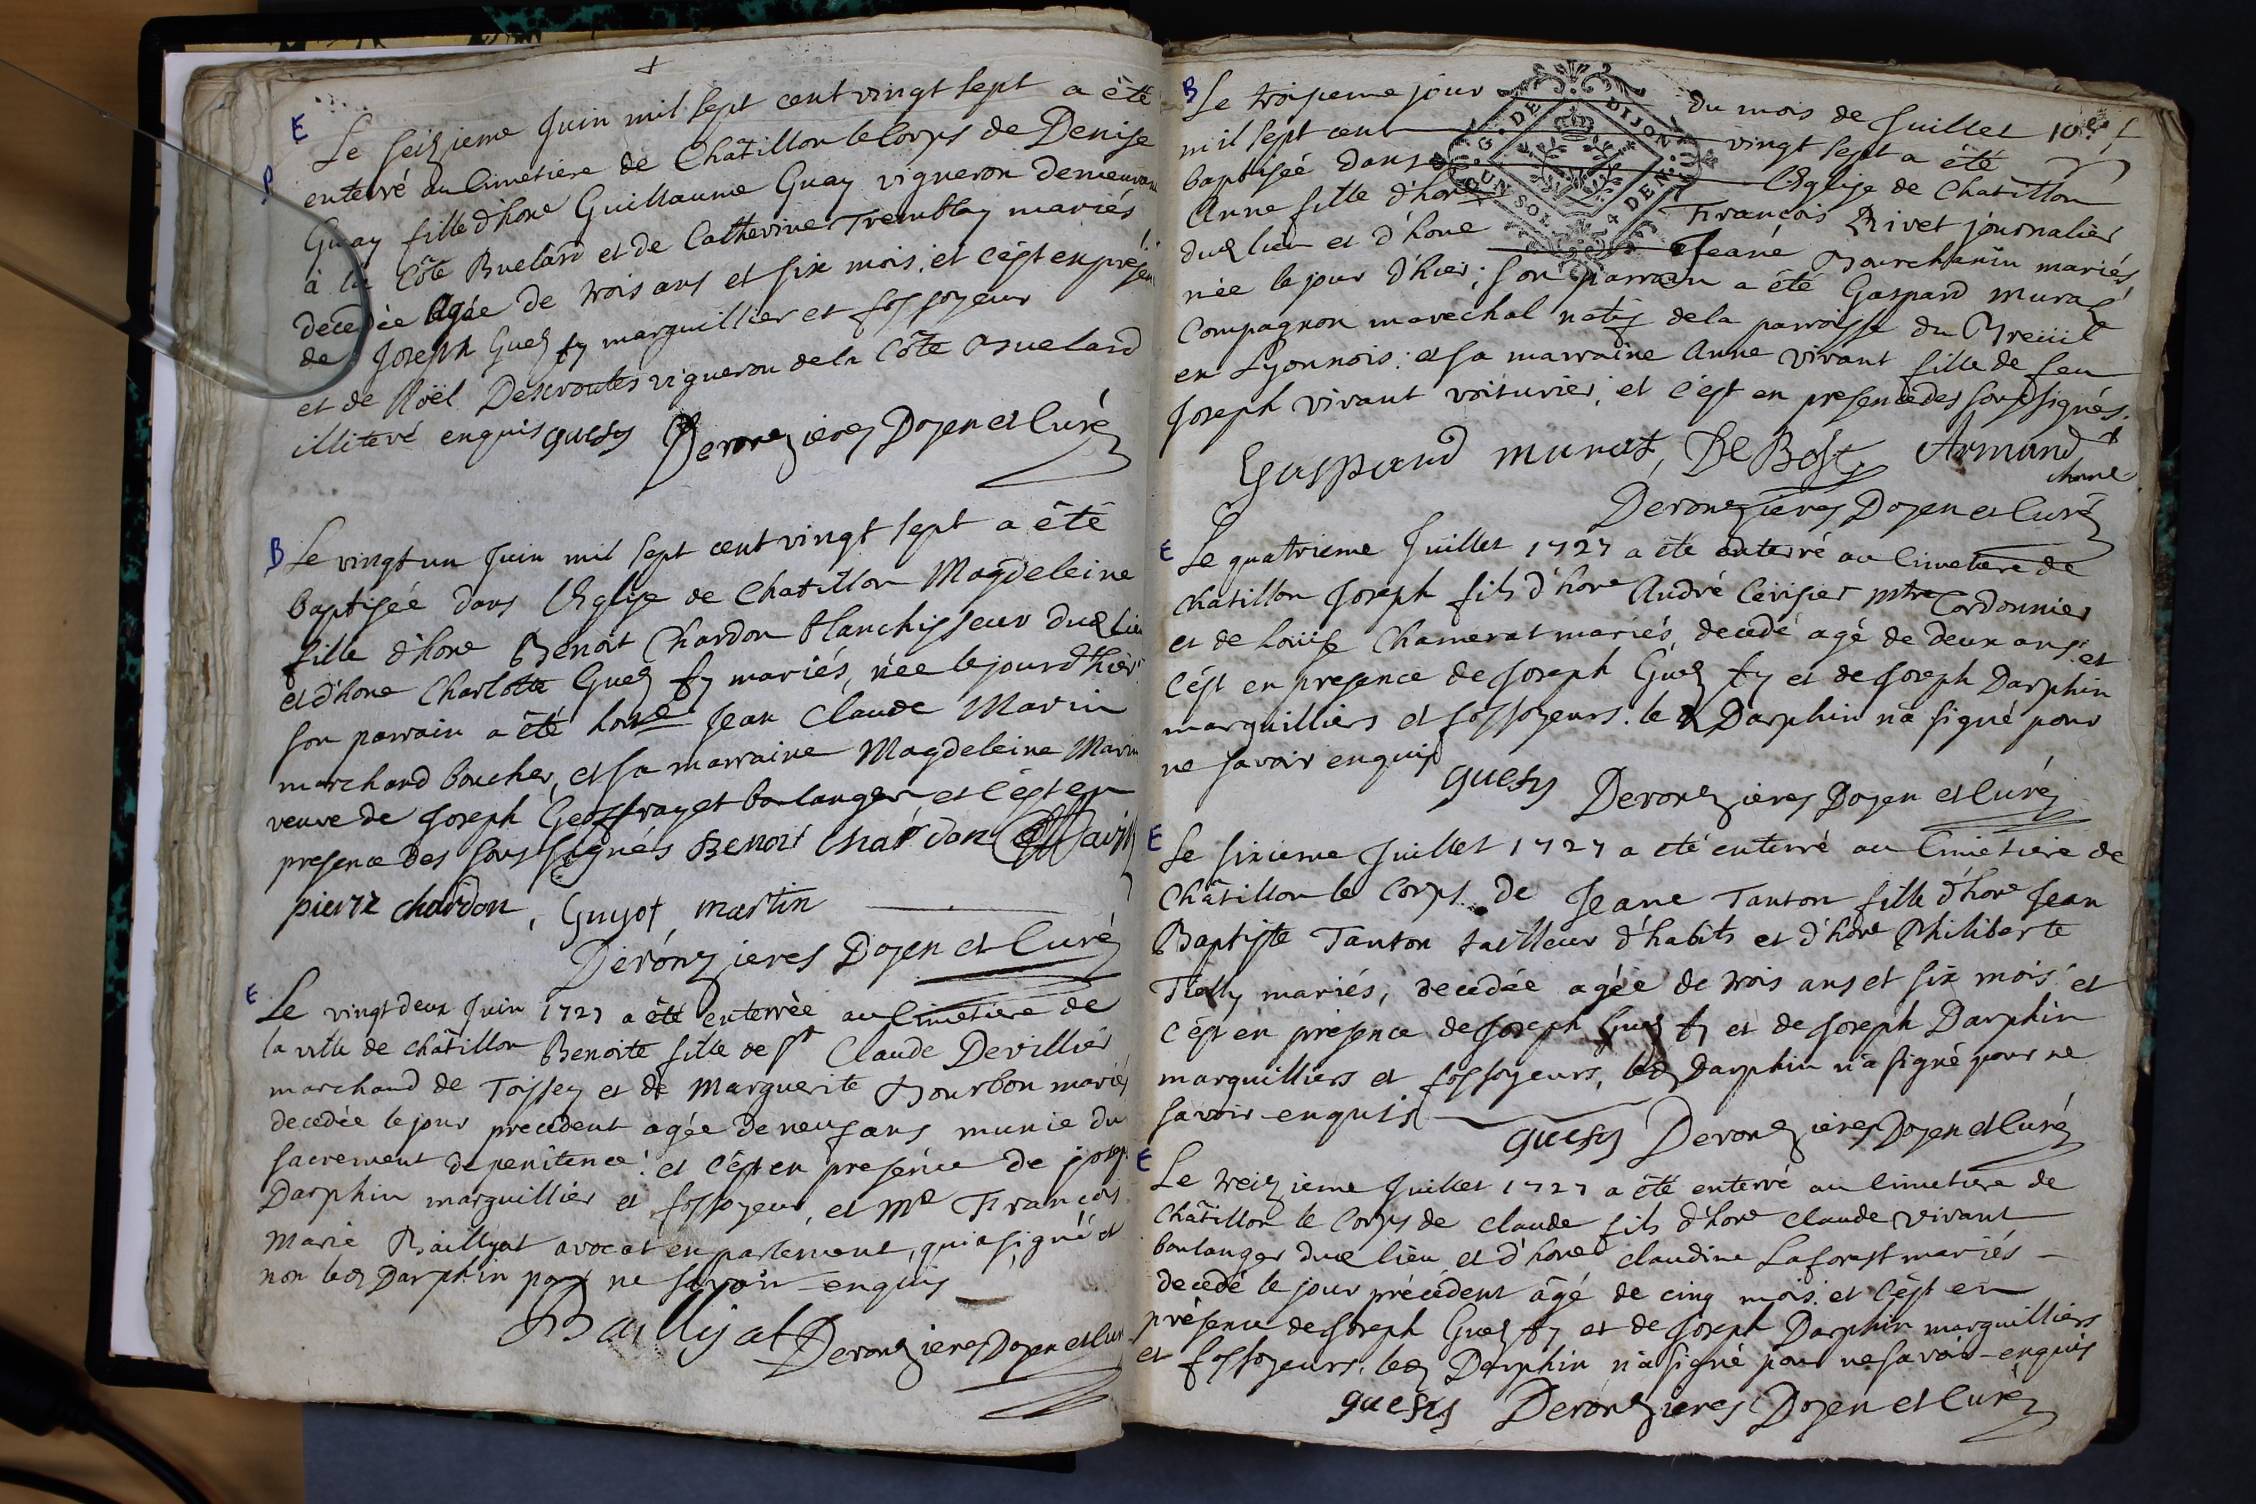 E
Le seizieme Juin mil sept cent vingt sept a êtê
enterré au Cimetiere de Chatillon le Corps de Denise
Guay fille d'hone Guillaume Guay vigneron demeurant
à la Côte Buelard et de Catherine Tremblay mariés
decedée agée de trois ans et six mois, et c'est en
de Joseph marguillier et fossoyeur
et de Noël Descroutes vigneron de la Côte Buelard
illiteré enquis guesy Deronzieres Doyen et Curé
B
Le vingt un Juin mil sept cent vingt sept a êtê
baptisée dans l'Eglise de Chatillon Magdeleine
fille d'hone Benoit Chardon blanchisseur dud lieu
et d'hone Charlotte mariés, née le jour d'hier
son parrain a êté hone Jean Claude Marin
marchand boucher, et sa marraine Magdeleine Marin
veuve de Joseph Geoffray et boulanger et c'est en
presence des soussignés Benoit Chardon
pierre chardon, Guyot martin
Deronzieres Doyen et Curé
E
Le vingt deux Juin 1727 a êté enterrèe au Cimetiere de
la ville de châtillon Benoite fille de Sr Claude Devillier
marchand de Toissey et de Marguerite Bourbon mariés
decedée le jour precedent agée de neuf ans munie du
sacrement de penitence: et c'est en presence de
Darphin marguillier et fossoyeur, et Mr Francois
Marie Baillyat avocat en parlement, qui a signé et
non led Darphin pour ne savoir enquis
Baillyat Deronzieres Doyen et Curé
B
Le troisieme jour du mois de Juillet
mil sept cent vingt sept a êté
baptisée dans l'Eglise de Chatillon
Anne fille d'hone François Rivet journalier
dud lieu et d'hone Jeane mariés
née le jour d'hier; son parrain a êté Gaspard Murat
Compagnon marechal natif de la parroisse du Breüil
en Lyonnois: et sa marraine Anne Vivant fille de feu
Joseph Vivant voiturier, et c'est en presence des soussignés.
G. DE DIJON
UN SOL 4 DEN.
Gaspard murat, De Bost Armand
Deronzieres Doyen et Curé
E
Le quatrieme Juillet 1727 a êté enterré au Cimetiere de
chatillon Joseph fils d'hone André Cerisier mtre Cordonnier
et de Loüise Chamerat mariés decedé agé de deux ans: et
c'est en presence de Joseph et de Joseph Darphin
marguilliers et fossoyeurs. le Darphin n'a signé pour
ne savoir enquis
guesy Deronzieres Doyen et Curé
E
Le sixieme Juillet 1727 a été enterré au Cimetiere de
Châtillon le Corps de Jeane Tanton fille d'hone Jean
Baptiste Tanton tailleur d'habits et d'hone Philiberte
mariés, decedée agée de trois ans et six mois et
c'est en présence de Joseph et de Joseph Darphin
marguilliers et fossoyeurs, led Darphin n'a signé pour ne
savoir enquis
guesy Deronzieres Doyen et Curé
E
Le treizieme Juillet 1727 a êté enterré au Cimetiere de
Châtillon le Corps de Claude fils d'hone Claude Vivant
boulanger dud lieu et d'hone Claudine Laforest mariés
decedé le jour précédent âgé de cinq mois. et c'est en
présence de Joseph et de Joseph Darphin marguilliers
et fossoyeurs, led Darphin n'a signé pour ne savoir enquis
guesy Deronzieres Doyen et Curé